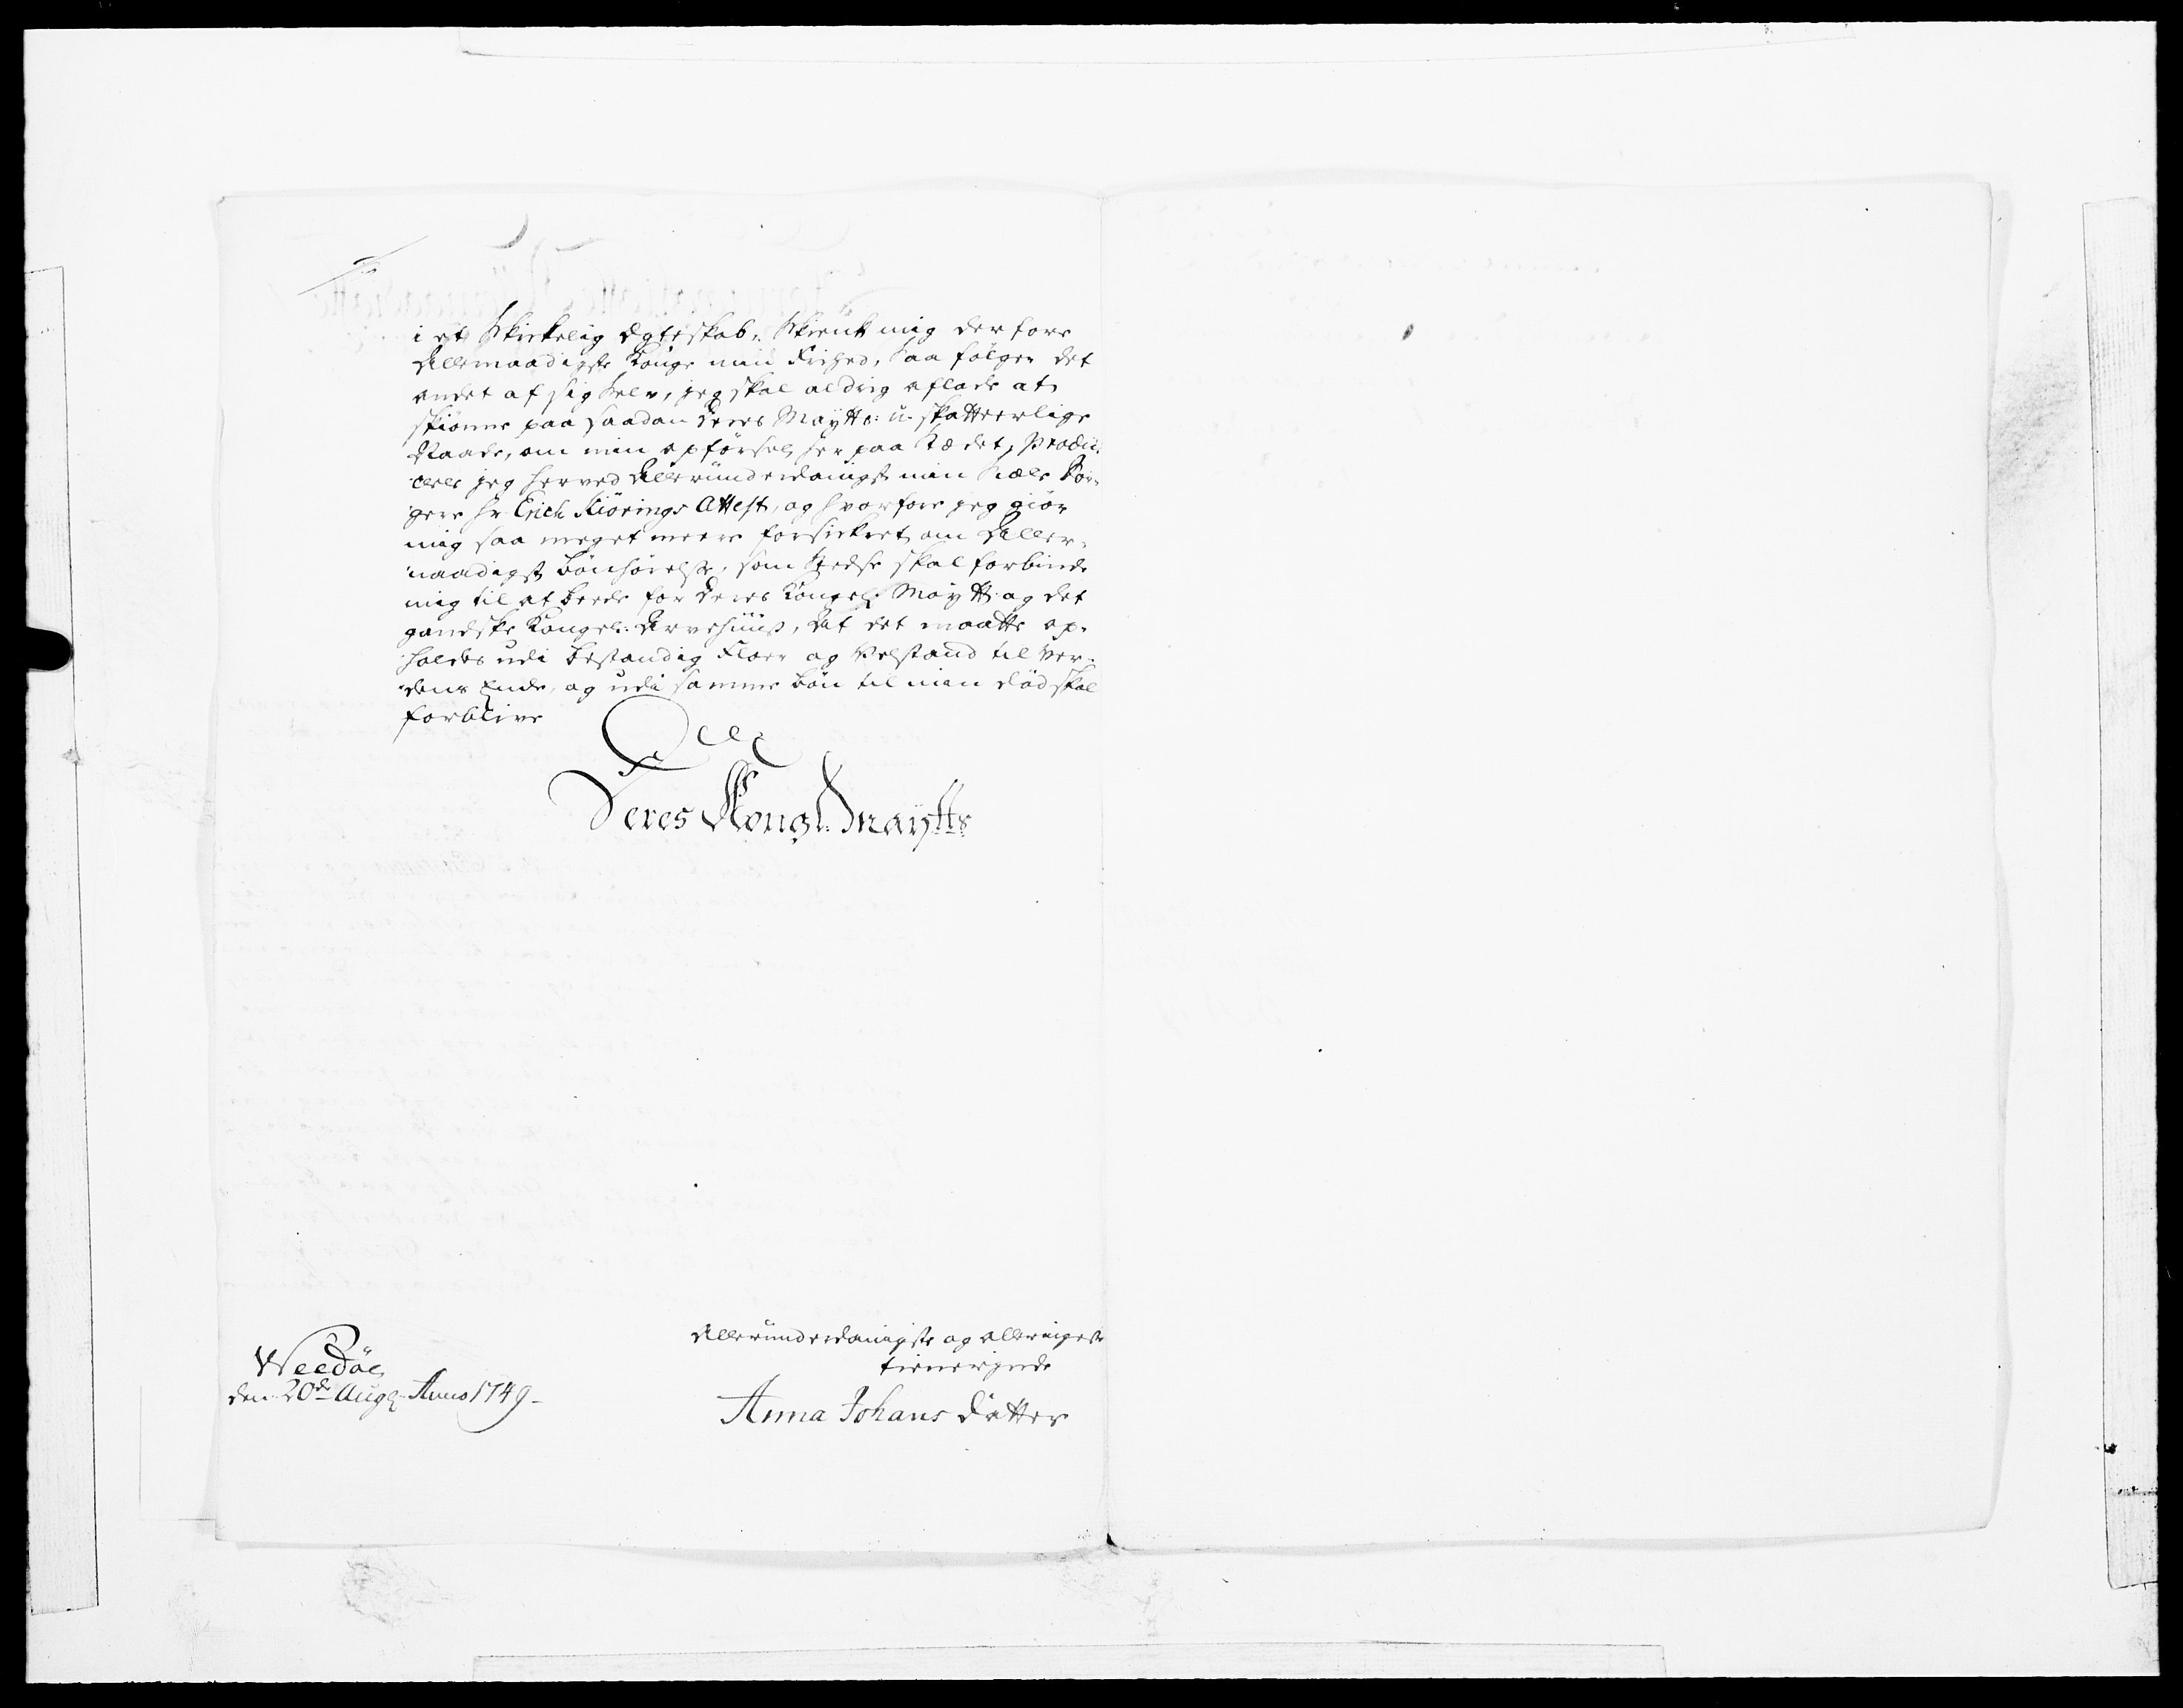 i et Skickelig Egteskab, Skienk mig derfore
Allernaadigste Konge min Frihed, saa fölger det
andet af sig selv, jeg skal aldrig aflade at
skiönne paa saadan Deres Maytts: u-skatteerlige
Naade, om min opförsel her paa Stædet, Produ-
cerer jeg herved Allerunderdanigst min Siæle Sör-
gere Hr Erich Kiörings Attest, og hvorfore jeg giör
mig saa meget meere forsickret om Aller-
naadigst Bönhörelse, som Stedse skal forbinde
mig til at beede for Deres Kongel: Maytt og det
gandske Kongel: Arvehuus, At det maatte op-
holdes udi bestandig Floer og Velstand til Ver-
dens Ende, og udi samme bön til min död skal
forblive
Deres Kongl: Maytts
Allerunderdanigste og allerringeste
tienerinde
Weedöe
den 20de Aug: Anno 1749-
Anna Johans Datter